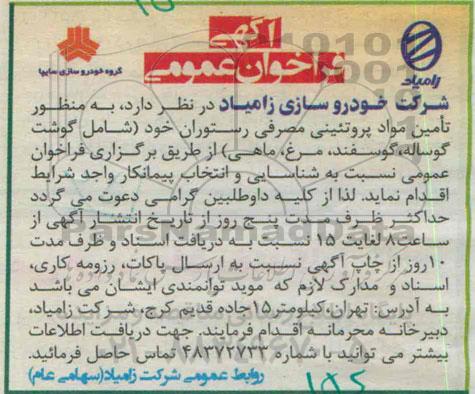 آگهی
فراخوان عمومی
گروه خودروسازی سایپا
زامیاد
شرکت خودرو سازی زامیاد در نظر دارد، به منظور
تأمین مواد پروتئینی مصرفی رستوران خود (شامل گوشت
گوساله،گوسفند، مرغ، ماهی) از طریق برگزاری فراخوان
عمومی نسبت به شناسایی و انتخاب پیمانکار واجد شرایط
اقدام نماید. لذا از کلیه داوطلبین گرامی دعوت می گردد
حداکثر ظرف مدت پنج روز از تاریخ انتشار آگهی از
ساعت۸ لغایت ۱۵ نسبت به دریافت اسناد و ظرف مدت
۱۰روز از چاپ آگهی نسبت به ارسال پاکات، رزومه کاری،
اسناد و مدارک لازم که موید توانمندی ایشان می باشد
به آدرس: تهران،کیلومتر۱۵جاده قدیم کرج، شرکت زامیاد،
دبیرخانه محرمانه اقدام فرمایند. جهت دریافت اطلاعات
بیشتر می توانید با شماره ۴۸۳۷۲۷۳۲ تماس حاصل فرمائید.
روابط عمومی شرکت زامیاد(سهامی عام)
ParsNamadData